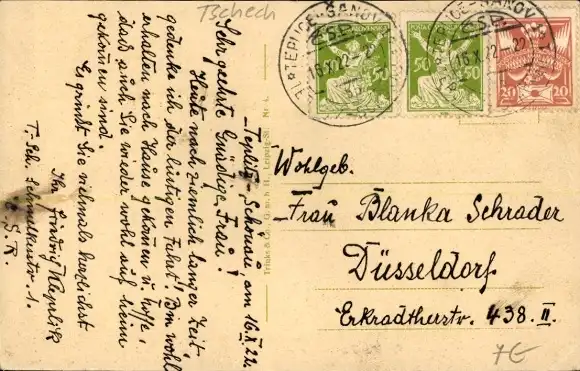 Tschech
Teplitz-Schönau, am 16.X.22.
Sehr geehrte Gnädige Frau!
Heute nach ziemlich langer Zeit
gedenke ich der lustigen Fahrt! Bin wohl
erhalten nach Hause gekommen u. hoffe,
dass auch Sie wieder wohl auf heim
gekommen sind.
Es grüsst Sie vielmals herzlichst
Ihr
T. Sch. 1.
Č. S. R.
TEPLICE-ŠANOV
16.X.22
50
50
20 20
Wohlgeb.
Frau Blanka Schrader
Düsseldorf
Erkradtherstr. 438. II.
7€